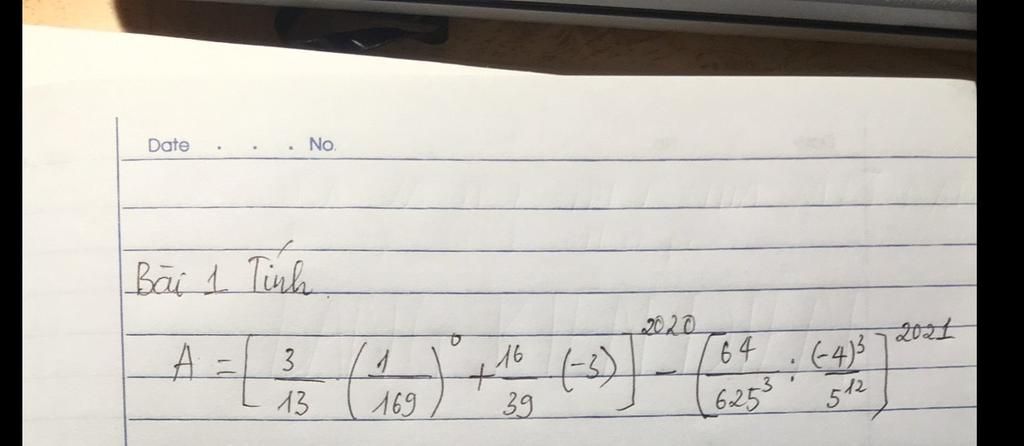 Date . . . No.
Bài 1 Tính
A = [ 3/13 . (1/169)^0 + 16/39 . (-3) ]^2020 - [ 64/625^3 : (-4)^3/5^12 ]^2021